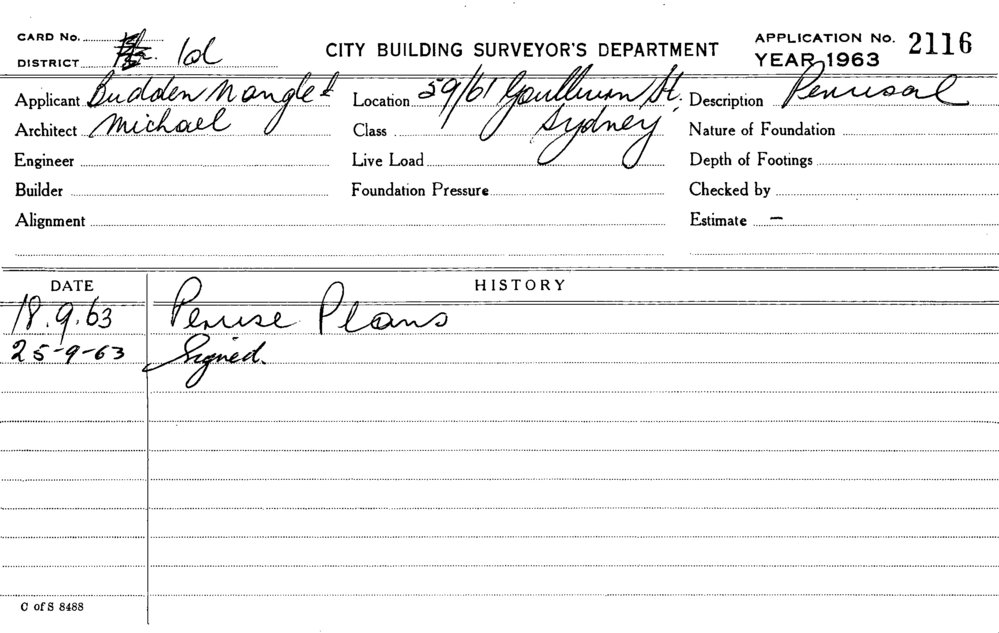 CARD No.
DISTRICT 1d
CITY BUILDING SURVEYOR'S DEPARTMENT
APPLICATION No. 2116
YEAR 1963
Applicant Budden Nangle &
Location 59/61 Goulburn St.
Description Perusal
Architect Michael
Class Sydney
Nature of Foundation
Engineer
Live Load
Depth of Footings
Builder
Foundation Pressure
Checked by
Alignment
Estimate –
DATE HISTORY
18.9.63 Peruse Plans
25-9-63 Signed.
C of S 8488